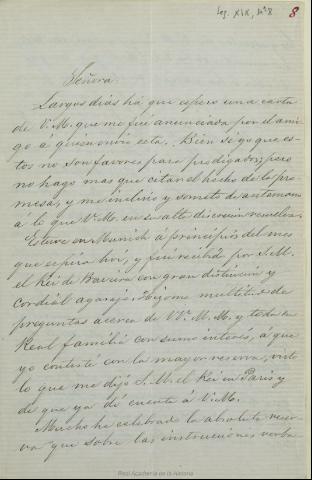 Leg. XIX, nº 8
8
Señora
Largos dias há que espero una carta
de V. M. que me fué anunciada por el ami-
go á quien envio esta. Bien sé yo que es-
tos no son favores para prodigados; pero
no hago mas que citar el hecho de la pro-
mesa, y me inclino y someto de antemano
á lo que V. M. en su alta discrecion resuelva.
Estuve en Munich á principios del mes
que espira hoy, y fui recibido por S. M.
el Rei de Baviera con gran distincion y
cordial agasajo. Hízome multitud de
preguntas acerca de VV. MM. y toda su
Real familia con sumo interés, á que
yo contesté con la mayor reserva, visto
lo que me dijo S. M. el Rei en Paris y
de que ya dí cuenta á V. M.
Mucho he celebrado la absoluta reser-
va que sobre las instrucciones verba-
Real Academia de la Historia